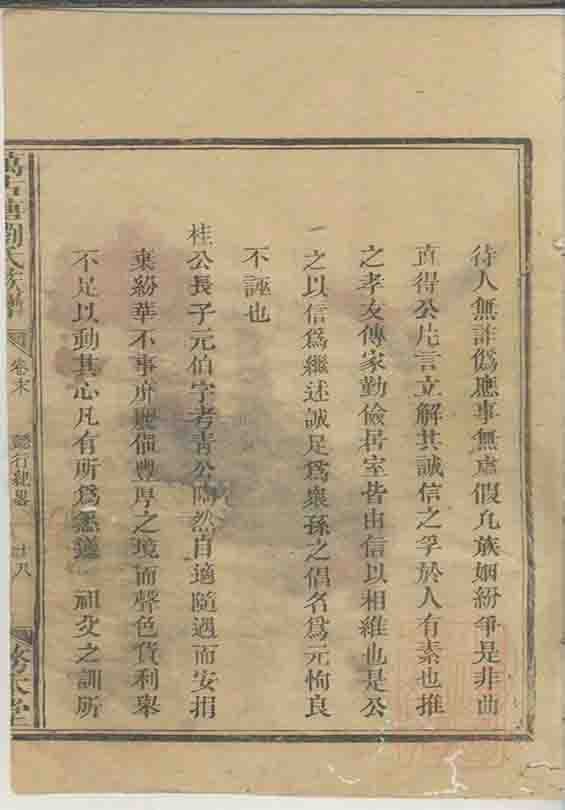 待人無詐偽應事無虛假凡族姻紛爭是非曲
直得公片言立解其誠信之孚於人有素也推
之孝友傳家勤儉居室皆由信以相維也是公
一之以信為繼述誠足為衆孫之倡名為元恂良
不誣也
桂公長子元伯字考青公陶然自適隨遇而安捐
棄紛華不事所處值豐厚之境而聲色貨利舉
不足以動其心凡有所為悉遵 祖父之訓所
劉氏族譜
卷末
懿行紀畧
廿八
務本堂